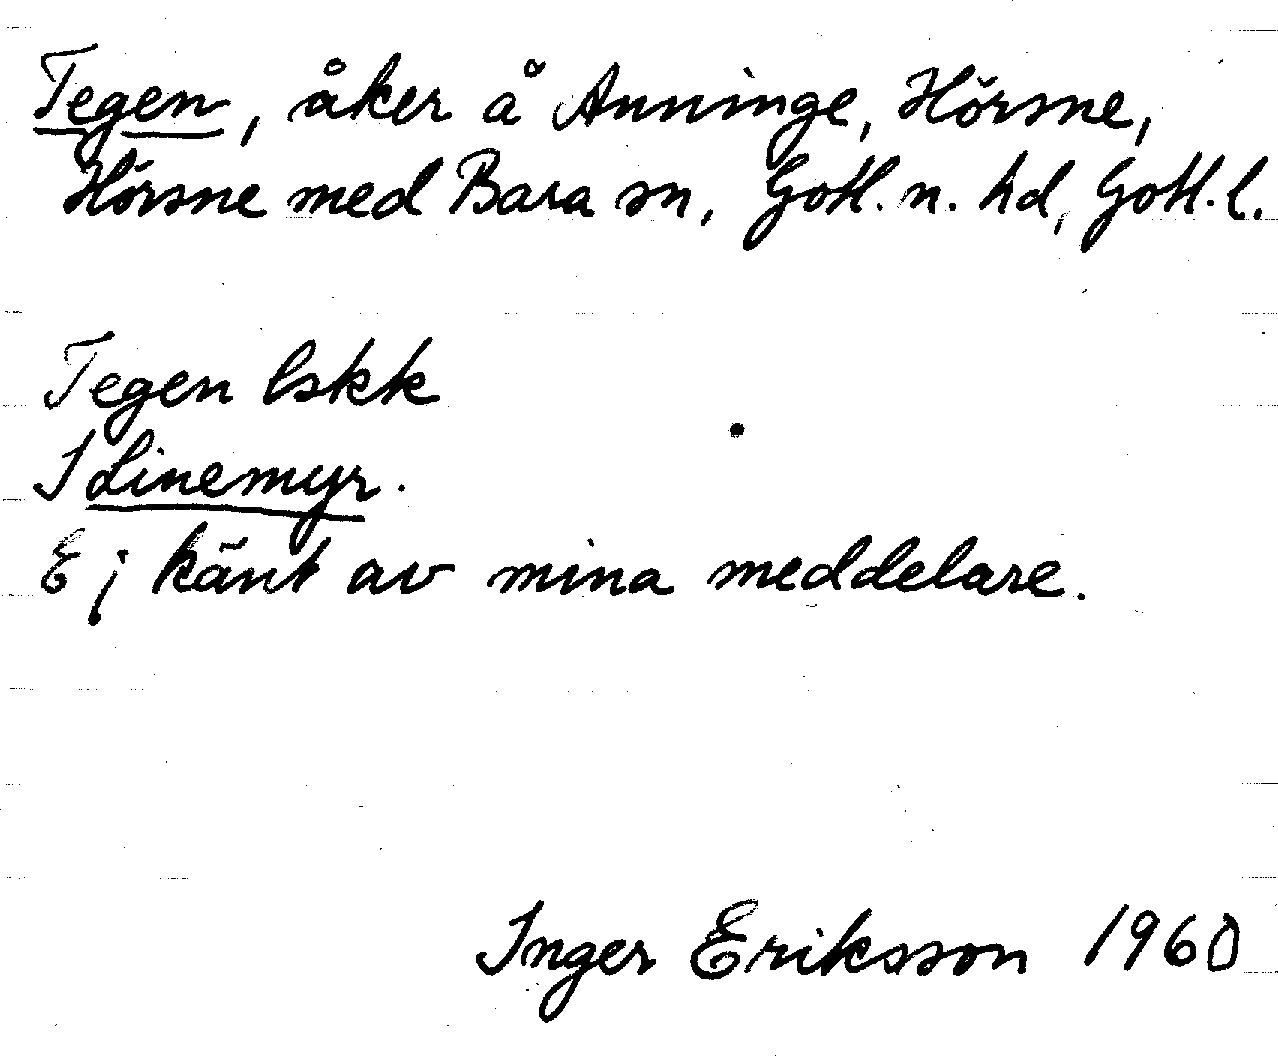 Tegen, åker å Anninge, Hörsne,
Hörsne med Bara sn, Gotl. n. hd, Gotl. l.
Tegen lskk
I Linemyr.
Ej känt av mina meddelare.
Inger Eriksson 1960